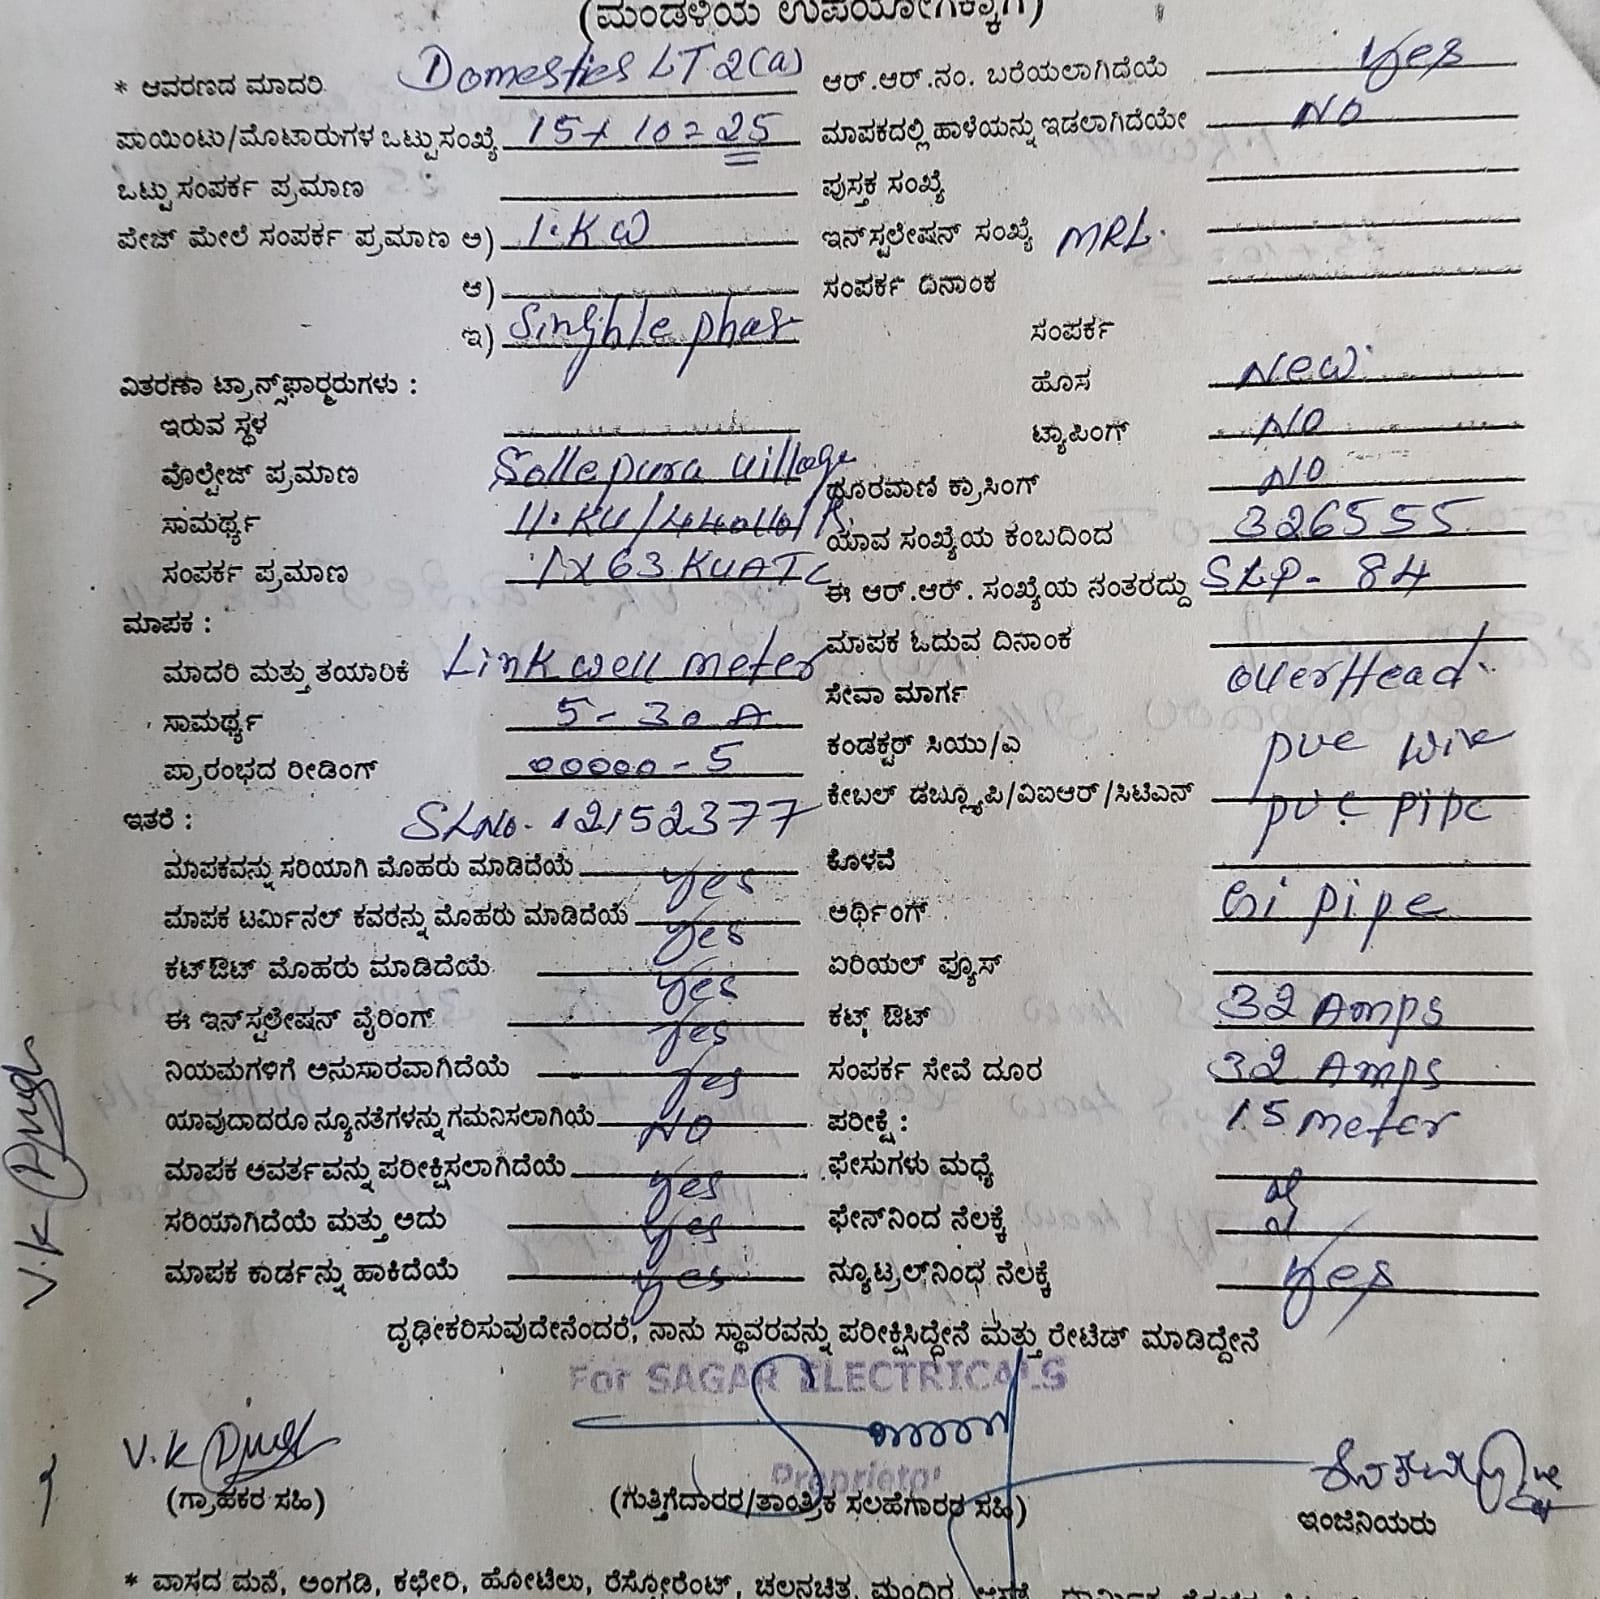 (ಮಂಡಳಿಯ ಉಪಯೋಗಕ್ಕಾಗಿ)
* ಆವರಣದ ಮಾದರಿ Domestics LT 2(a) ಆರ್.ಆರ್.ನಂ. ಬರೆಯಲಾಗಿದೆಯೆ Yes
ಪಾಯಿಂಟು/ಮೊಟಾರುಗಳ ಒಟ್ಟು ಸಂಖ್ಯೆ 15+10=25 ಮಾಪಕದಲ್ಲಿ ಹಾಳೆಯನ್ನು ಇಡಲಾಗಿದೆಯೇ NO
ಒಟ್ಟು ಸಂಪರ್ಕ ಪ್ರಮಾಣ ಪುಸ್ತಕ ಸಂಖ್ಯೆ
ಪೇಜ್ ಮೇಲೆ ಸಂಪರ್ಕ ಪ್ರಮಾಣ ಅ) 1.KW ಇನ್‌ಸ್ಟಲೇಷನ್ ಸಂಖ್ಯೆ MRL.
ಆ) ಸಂಪರ್ಕ ದಿನಾಂಕ
ಇ) Singhle phas ಸಂಪರ್ಕ
ವಿತರಣಾ ಟ್ರಾನ್ಸ್‌ಫಾರ್ಮರುಗಳು : ಹೊಸ New
ಇರುವ ಸ್ಥಳ ಟ್ಯಾಪಿಂಗ್ NO
ವೊಲ್ಟೇಜ್ ಪ್ರಮಾಣ Sollepura village ದೂರವಾಣಿ ಕ್ರಾಸಿಂಗ್ NO
ಸಾಮರ್ಥ್ಯ ಯಾವ ಸಂಖ್ಯೆಯ ಕಂಬದಿಂದ 326555
ಸಂಪರ್ಕ ಪ್ರಮಾಣ 1X63 KVATC ಈ ಆರ್.ಆರ್. ಸಂಖ್ಯೆಯ ನಂತರದ್ದು SLP-84
ಮಾಪಕ : ಮಾಪಕ ಓದುವ ದಿನಾಂಕ
ಮಾದರಿ ಮತ್ತು ತಯಾರಿಕೆ Linkwell meter ಸೇವಾ ಮಾರ್ಗ overHead
ಸಾಮರ್ಥ್ಯ 5-30 A ಕಂಡಕ್ಟರ್ ಸಿಯು/ಎ pvc wire
ಪ್ರಾರಂಭದ ರೀಡಿಂಗ್ 00000-5 ಕೇಬಲ್ ಡಬ್ಲ್ಯೂಪಿ/ವಿಐಆರ್/ಸಿಟಿಎಸ್ pvc pipe
ಇತರೆ : SLNo. 12152377
ಮಾಪಕವನ್ನು ಸರಿಯಾಗಿ ಮೊಹರು ಮಾಡಿದೆಯೆ Yes ಕೊಳವೆ
ಮಾಪಕ ಟರ್ಮಿನಲ್ ಕವರನ್ನು ಮೊಹರು ಮಾಡಿದೆಯೆ Yes ಅರ್ಥಿಂಗ್ Gi pipe
ಕಟ್‌ಔಟ್ ಮೊಹರು ಮಾಡಿದೆಯೆ Yes ಏರಿಯಲ್ ಫ್ಯೂಸ್
ಈ ಇನ್‌ಸ್ಟಲೇಷನ್ ವೈರಿಂಗ್ Yes ಕಟ್ ಔಟ್ 32 Amps
ನಿಯಮಗಳಿಗೆ ಅನುಸಾರವಾಗಿದೆಯೆ Yes ಸಂಪರ್ಕ ಸೇವೆ ದೂರ 32 Amps
ಯಾವುದಾದರೂ ನ್ಯೂನತೆಗಳನ್ನು ಗಮನಿಸಲಾಗಿಯೆ NO ಪರೀಕ್ಷೆ : 15 meter
ಮಾಪಕ ಅವರ್ತವನ್ನು ಪರೀಕ್ಷಿಸಲಾಗಿದೆಯೆ Yes ಫೇಸುಗಳು ಮಧ್ಯೆ
ಸರಿಯಾಗಿದೆಯೆ ಮತ್ತು ಅದು Yes ಫೇಸ್‌ನಿಂದ ನೆಲಕ್ಕೆ
ಮಾಪಕ ಕಾರ್ಡನ್ನು ಹಾಕಿದೆಯೆ Yes ನ್ಯೂಟ್ರಲ್‌ನಿಂಧ ನೆಲಕ್ಕೆ Yes
ದೃಢೀಕರಿಸುವುದೇನೆಂದರೆ, ನಾನು ಸ್ಥಾವರವನ್ನು ಪರೀಕ್ಷಿಸಿದ್ದೇನೆ ಮತ್ತು ರೇಟೆಡ್ ಮಾಡಿದ್ದೇನೆ
For SAGAR ELECTRICALS
V.K
V.K
Proprietor
(ಗ್ರಾಹಕರ ಸಹಿ) (ಗುತ್ತಿಗೆದಾರರ/ತಾಂತ್ರಿಕ ಸಲಹೆಗಾರರ ಸಹಿ) ಇಂಜಿನಿಯರು
* ವಾಸದ ಮನೆ, ಅಂಗಡಿ, ಕಛೇರಿ, ಹೋಟೆಲು, ರೆಸ್ಟೋರೆಂಟ್, ಚಲನಚಿತ್ರ ಮಂದಿರ